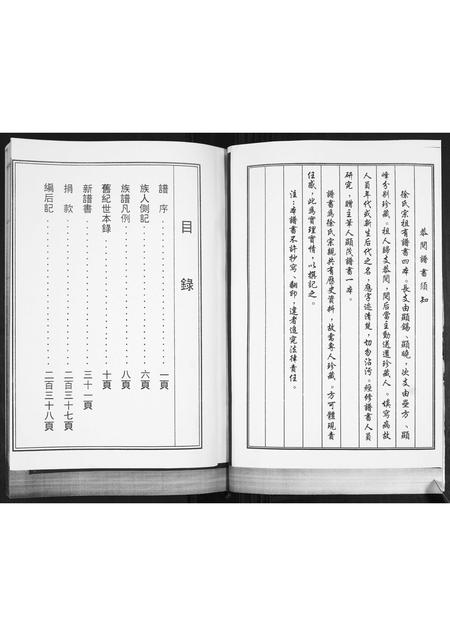 恭閱譜書須知
徐氏宗祖有譜書四本。長支由顯錫、顯曉，次支由學方、顯
峰分别珍藏。祖人歸支恭閱，閱后當主動送還珍藏人。填寫病故
人員年代或新生后代之名，應字迹清楚，切勿沾污。經修譜書人員
研究，贈主筆人顯茂譜書一本。
譜書為徐氏宗親共有歷史資料，故需專人珍藏。方可體現責
任感，此為實理實情，以撰記之。
注：本譜書不許抄寫、翻印，違者追究法律責任。
目錄
譜序……一頁
族人側記……六頁
族譜凡例……八頁
舊紀世本錄……十頁
新譜書……三十一頁
捐款……二百三十七頁
編后記……二百三十八頁